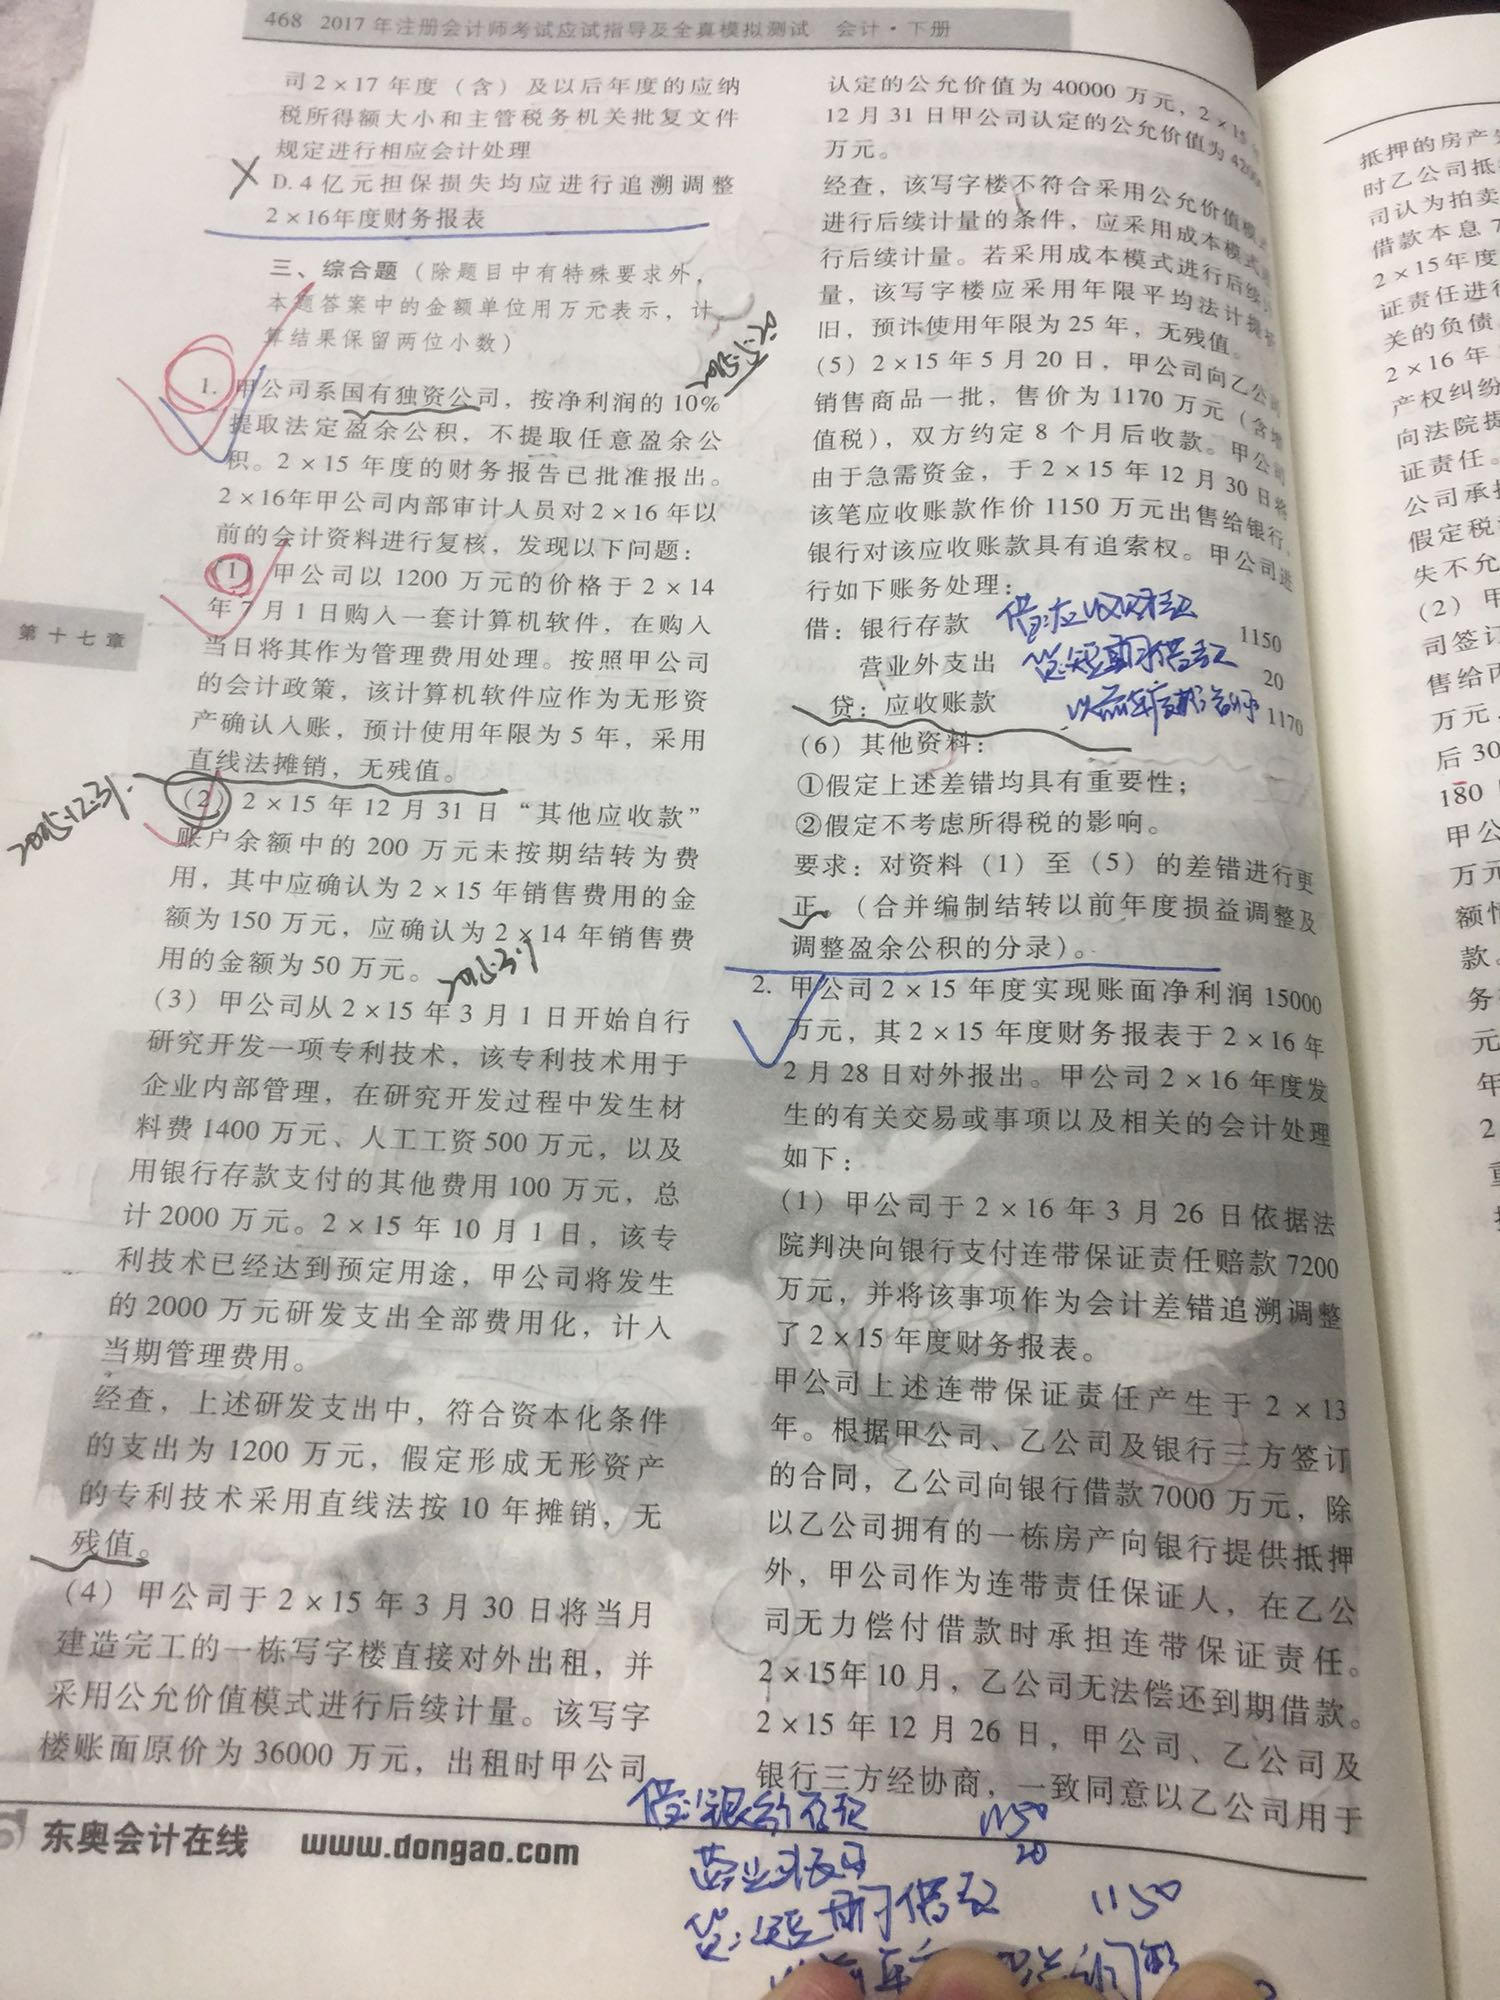 468 2017年注册会计师考试应试指导及全真模拟测试 会计·下册
司2×17年度（含）及以后年度的应纳
税所得额大小和主管税务机关批复文件
规定进行相应会计处理
D.4亿元担保损失均应进行追溯调整
2×16年度财务报表
三、综合题（除题目中有特殊要求外，
本题答案中的金额单位用万元表示，计
算结果保留两位小数）
1. 甲公司系国有独资公司，按净利润的10%
提取法定盈余公积，不提取任意盈余公
积。2×15年度的财务报告已批准报出。
2×16年甲公司内部审计人员对2×16年以
前的会计资料进行复核，发现以下问题：
（1）甲公司以1200万元的价格于2×14
年7月1日购入一套计算机软件，在购入
当日将其作为管理费用处理。按照甲公司
的会计政策，该计算机软件应作为无形资
产确认入账，预计使用年限为5年，采用
直线法摊销，无残值。
2015.12.31.
（2）2×15年12月31日“其他应收款”
账户余额中的200万元未按期结转为费
用，其中应确认为2×15年销售费用的金
额为150万元，应确认为2×14年销售费
用的金额为50万元。
第十七章
（3）甲公司从2×15年3月1日开始自行
研究开发一项专利技术，该专利技术用于
企业内部管理，在研究开发过程中发生材
料费1400万元、人工工资500万元，以及
用银行存款支付的其他费用100万元，总
计2000万元。2×15年10月1日，该专
利技术已经达到预定用途，甲公司将发生
的2000万元研发支出全部费用化，计入
当期管理费用。
经查，上述研发支出中，符合资本化条件
的支出为1200万元，假定形成无形资产
的专利技术采用直线法按10年摊销，无
残值。
（4）甲公司于2×15年3月30日将当月
建造完工的一栋写字楼直接对外出租，并
采用公允价值模式进行后续计量。该写字
楼账面原价为36000万元，出租时甲公司
认定的公允价值为40000万元，2×15年
12月31日甲公司认定的公允价值为42000
万元。
经查，该写字楼不符合采用公允价值模式
进行后续计量的条件，应采用成本模式进
行后续计量。若采用成本模式进行后续计
量，该写字楼应采用年限平均法计提折
旧，预计使用年限为25年，无残值。
（5）2×15年5月20日，甲公司向乙公司
销售商品一批，售价为1170万元（含增
值税），双方约定8个月后收款。甲公司
由于急需资金，于2×15年12月30日将
该笔应收账款作价1150万元出售给银行，
银行对该应收账款具有追索权。甲公司进
行如下账务处理：
借：银行存款 1150
营业外支出 20
贷：应收账款 1170
借:应收账款
贷:短期借款
（6）其他资料：
①假定上述差错均具有重要性；
②假定不考虑所得税的影响。
要求：对资料（1）至（5）的差错进行更
正。（合并编制结转以前年度损益调整及
调整盈余公积的分录）。
2. 甲公司2×15年度实现账面净利润15000
万元，其2×15年度财务报表于2×16年
2月28日对外报出。甲公司2×16年度发
生的有关交易或事项以及相关的会计处理
如下：
（1）甲公司于2×16年3月26日依据法
院判决向银行支付连带保证责任赔款7200
万元，并将该事项作为会计差错追溯调整
了2×15年度财务报表。
甲公司上述连带保证责任产生于2×13
年。根据甲公司、乙公司及银行三方签订
的合同，乙公司向银行借款7000万元，除
以乙公司拥有的一栋房产向银行提供抵押
外，甲公司作为连带责任保证人，在乙公
司无力偿付借款时承担连带保证责任。
2×15年10月，乙公司无法偿还到期借款。
2×15年12月26日，甲公司、乙公司及
银行三方经协商，一致同意以乙公司用于
借:银行存款 1150
20
贷:短期借款 1150
东奥会计在线 www.dongao.com
抵押的房产
时乙公司抵
司认为拍卖
借款本息7
2×15年度
证责任进行
关的负债
2×16年
产权纠纷
向法院提
证责任。
公司承担
假定税
失不允
（2）甲
司签订
售给丙
万元，
后30
180
甲公
万元
额
款。
务
元
年
2
重